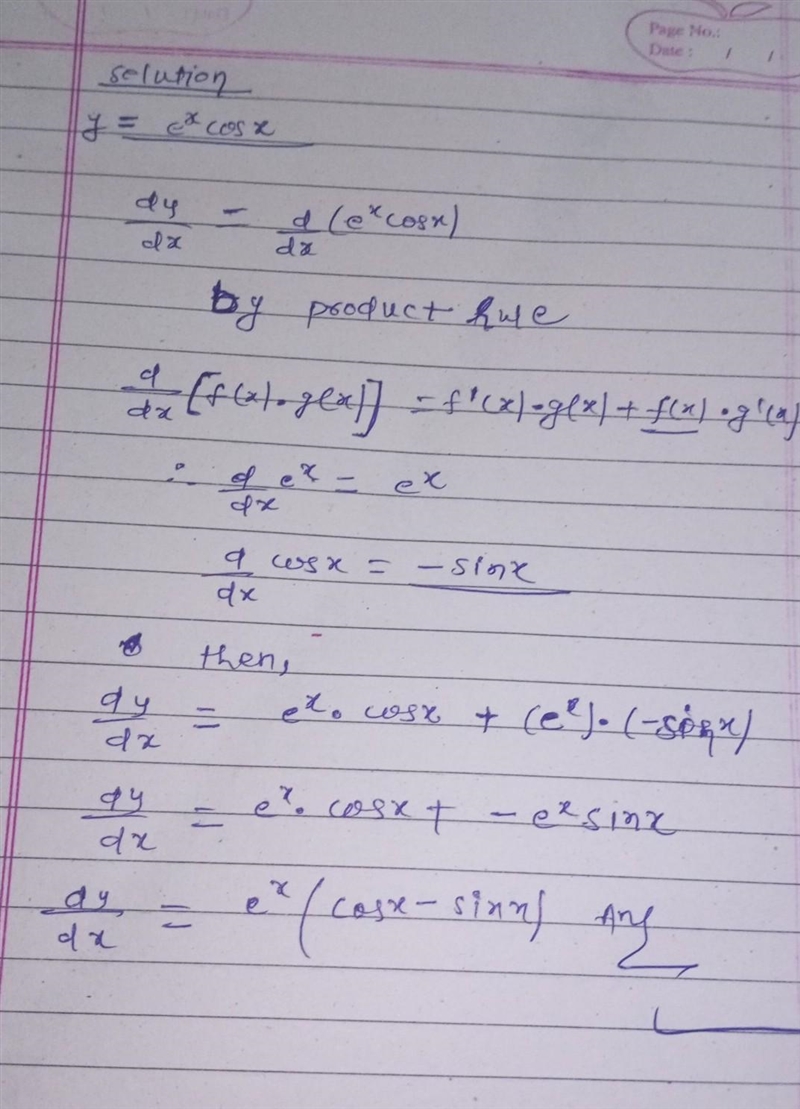 Page No.:
Date : / /
solution
y = e^x cosx
dy/dx = d/dx (e^x cosx)
by product rule
d/dx [f(x)·g(x)] = f'(x)·g(x) + f(x)·g'(x)
∴ d/dx e^x = e^x
d/dx cosx = -sinx
then,
dy/dx = e^x· cosx + (e^x)·(-sinx)
dy/dx = e^x· cosx + - e^x sinx
dy/dx = e^x (cosx - sinx) Ans